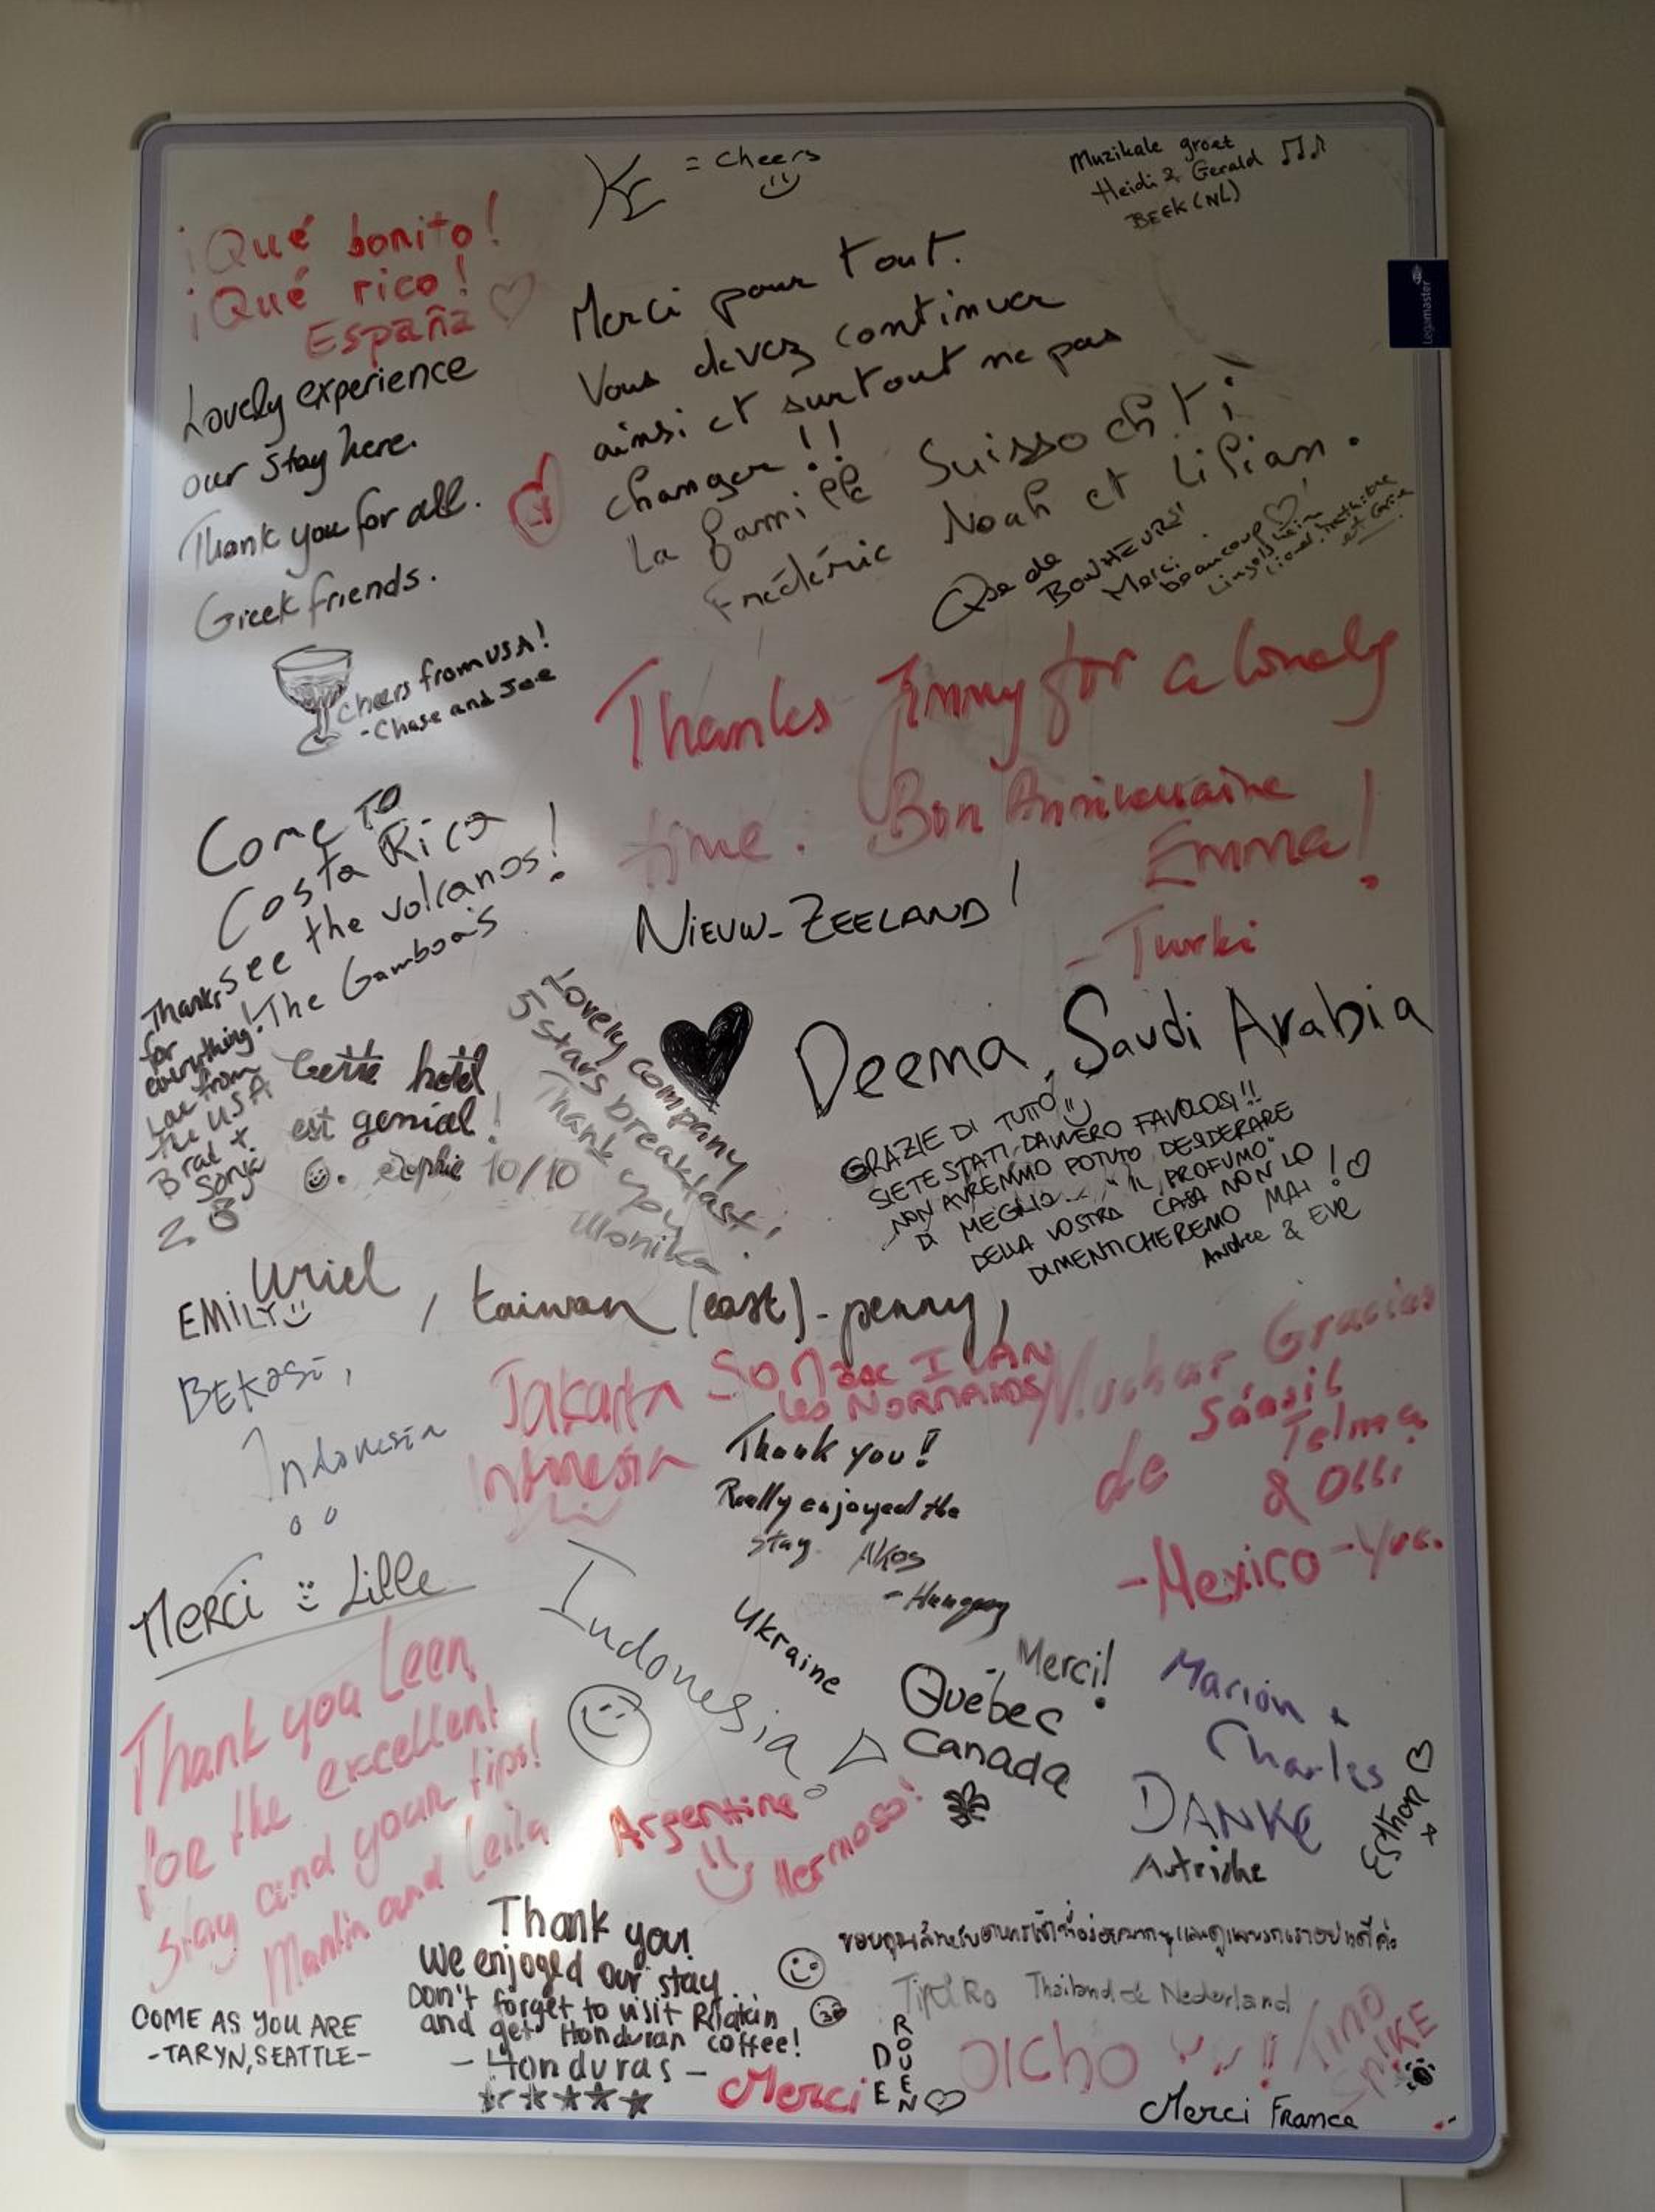 = cheers
Muzikale groet
Heidi & Gerald
BEEK (NL)
Legamaster
¡Qué bonito!
¡Qué rico!
España
Merci pour tout.
Vous devez continuer
ainsi et surtout ne pas
changer !!
La famille Suisso ch'ti
Frédéric Noah et Lilian.
Lovely experience
our stay here.
Thank you for all.
Greek friends.
Que de
BONHEURS!
Merci
beaucoup
Cheers from USA!
- Chase and Joe
Thanks Jimmy for a lovely
time. Bon Anniversaire
Emma!
- Turki
Come TO
Costa Rica
see the volcanos!
The Gamboa's
NIEUW-ZEELAND!
Thanks
for
everything!
the USA
Brad +
Sonja
Cette hotel
est genial!
Sophie 10/10
Lovely company
5 stars breakfast!
Thank you
Monika
Deema, Saudi Arabia
GRAZIE DI TUTTO
SIETE STATI DAVVERO FAVOLOSI!!
NON AVREMMO POTUTO DESIDERARE
DI MEGLIO... "IL PROFUMO"
DELLA VOSTRA CASA NON LO
DIMENTICHEREMO MAI!
Andre & EVE
Uriel
EMILY
, taiwan (east) - penny,
BEKASI,
Indonesia
Jakarta
Indonesia
LES NORMANDS
Muchas Gracias
de
Telma
& Olli
- Mexico - Yuc.
Thank you!
Really enjoyed the
stay. Akos
- Hungary
Merci Lille
Indonesia
Ukraine
Merci!
Québec
Canada
Marion +
Charles
DANKE
Esther
Thank you Leen
for the excellent
stay and your tips!
Martin and Leila
Argentina
Hermoso!
Thank you!
We enjoyed our stay
Don't forget to visit Roatan
and get Honduran coffee!
- Honduras -
COME AS YOU ARE
- TARYN, SEATTLE -
ขอบคุณสำหรับอาหารเช้าที่อร่อยมากๆและดูแลพวกเราอย่างดีค่ะ
Thailand & Nederland
DICHO
TINO
SPIKE
Merci
DE
ROUEN
Merci France